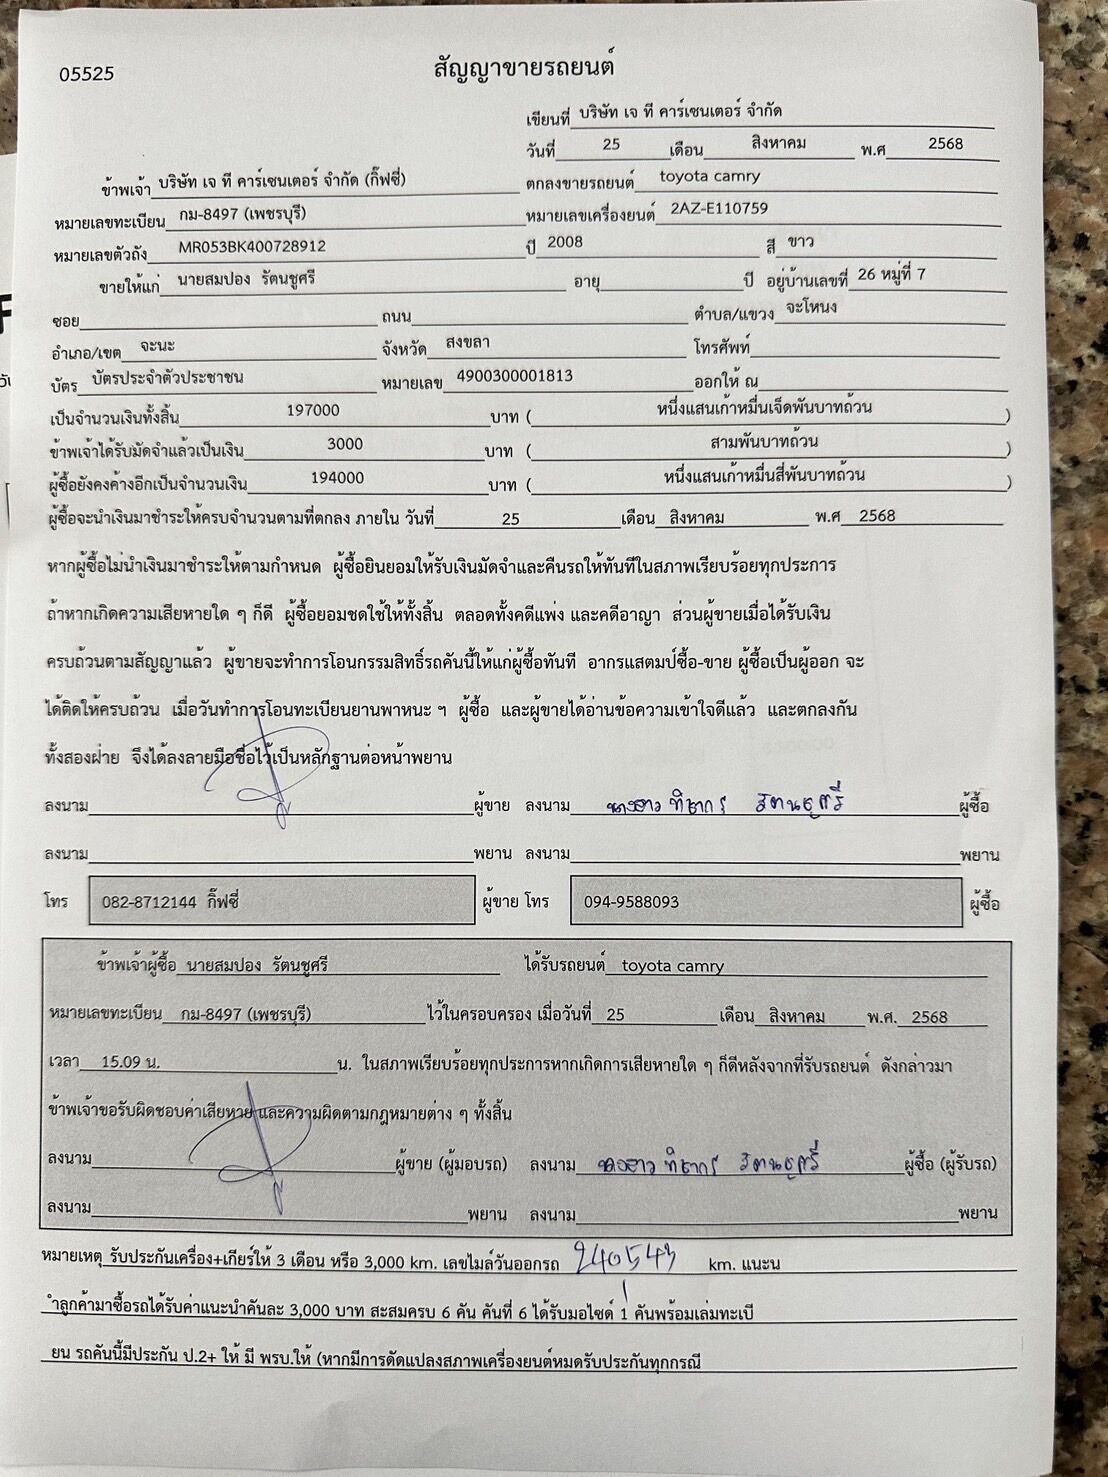 05525
สัญญาขายรถยนต์
เขียนที่ บริษัท เจ ที คาร์เซนเตอร์ จำกัด
วันที่ 25 เดือน สิงหาคม พ.ศ 2568
ข้าพเจ้า บริษัท เจ ที คาร์เซนเตอร์ จำกัด (กิ๊ฟซี่) ตกลงขายรถยนต์ toyota camry
หมายเลขทะเบียน กม-8497 (เพชรบุรี) หมายเลขเครื่องยนต์ 2AZ-E110759
หมายเลขตัวถัง MR053BK400728912 ปี 2008 สี ขาว
ขายให้แก่ นายสมปอง รัตนชูศรี อายุ ปี อยู่บ้านเลขที่ 26 หมู่ที่ 7
ซอย ถนน ตำบล/แขวง จะโหนง
อำเภอ/เขต จะนะ จังหวัด สงขลา โทรศัพท์
บัตร บัตรประจำตัวประชาชน หมายเลข 4900300001813 ออกให้ ณ
เป็นจำนวนเงินทั้งสิ้น 197000 บาท ( หนึ่งแสนเก้าหมื่นเจ็ดพันบาทถ้วน )
ข้าพเจ้าได้รับมัดจำแล้วเป็นเงิน 3000 บาท ( สามพันบาทถ้วน )
ผู้ซื้อยังคงค้างอีกเป็นจำนวนเงิน 194000 บาท ( หนึ่งแสนเก้าหมื่นสี่พันบาทถ้วน )
ผู้ซื้อจะนำเงินมาชำระให้ครบจำนวนตามที่ตกลง ภายใน วันที่ 25 เดือน สิงหาคม พ.ศ 2568
หากผู้ซื้อไม่นำเงินมาชำระให้ตามกำหนด ผู้ซื้อยินยอมให้รับเงินมัดจำและคืนรถให้ทันทีในสภาพเรียบร้อยทุกประการ
ถ้าหากเกิดความเสียหายใด ๆ ก็ดี ผู้ซื้อยอมชดใช้ให้ทั้งสิ้น ตลอดทั้งคดีแพ่ง และคดีอาญา ส่วนผู้ขายเมื่อได้รับเงิน
ครบถ้วนตามสัญญาแล้ว ผู้ขายจะทำการโอนกรรมสิทธิ์รถคันนี้ให้แก่ผู้ซื้อทันที อากรแสตมป์ซื้อ-ขาย ผู้ซื้อเป็นผู้ออก จะ
ได้ติดให้ครบถ้วน เมื่อวันทำการโอนทะเบียนยานพาหนะ ฯ ผู้ซื้อ และผู้ขายได้อ่านข้อความเข้าใจดีแล้ว และตกลงกัน
ทั้งสองฝ่าย จึงได้ลงลายมือชื่อไว้เป็นหลักฐานต่อหน้าพยาน
ลงนาม ผู้ขาย ลงนาม นางสาว ทิชากร รัตนชูศรี ผู้ซื้อ
ลงนาม พยาน ลงนาม พยาน
โทร 082-8712144 กิ๊ฟซี่ ผู้ขาย โทร 094-9588093 ผู้ซื้อ
ข้าพเจ้าผู้ซื้อ นายสมปอง รัตนชูศรี ได้รับรถยนต์ toyota camry
หมายเลขทะเบียน กม-8497 (เพชรบุรี) ไว้ในครอบครอง เมื่อวันที่ 25 เดือน สิงหาคม พ.ศ. 2568
เวลา 15.09 น. น. ในสภาพเรียบร้อยทุกประการหากเกิดการเสียหายใด ๆ ก็ดีหลังจากที่รับรถยนต์ ดังกล่าวมา
ข้าพเจ้าขอรับผิดชอบค่าเสียหาย และความผิดตามกฎหมายต่าง ๆ ทั้งสิ้น
ลงนาม ผู้ขาย (ผู้มอบรถ) ลงนาม นางสาว ทิชากร รัตนชูศรี ผู้ซื้อ (ผู้รับรถ)
ลงนาม พยาน ลงนาม พยาน
หมายเหตุ รับประกันเครื่อง+เกียร์ให้ 3 เดือน หรือ 3,000 km. เลขไมล์วันออกรถ 240543 km. แนะน
ำลูกค้ามาซื้อรถได้รับค่าแนะนำคันละ 3,000 บาท สะสมครบ 6 คัน คันที่ 6 ได้รับมอไซด์ 1 คันพร้อมเล่มทะเบี
ยน รถคันนี้มีประกัน ป.2+ ให้ มี พรบ.ให้ (หากมีการดัดแปลงสภาพเครื่องยนต์หมดรับประกันทุกกรณี